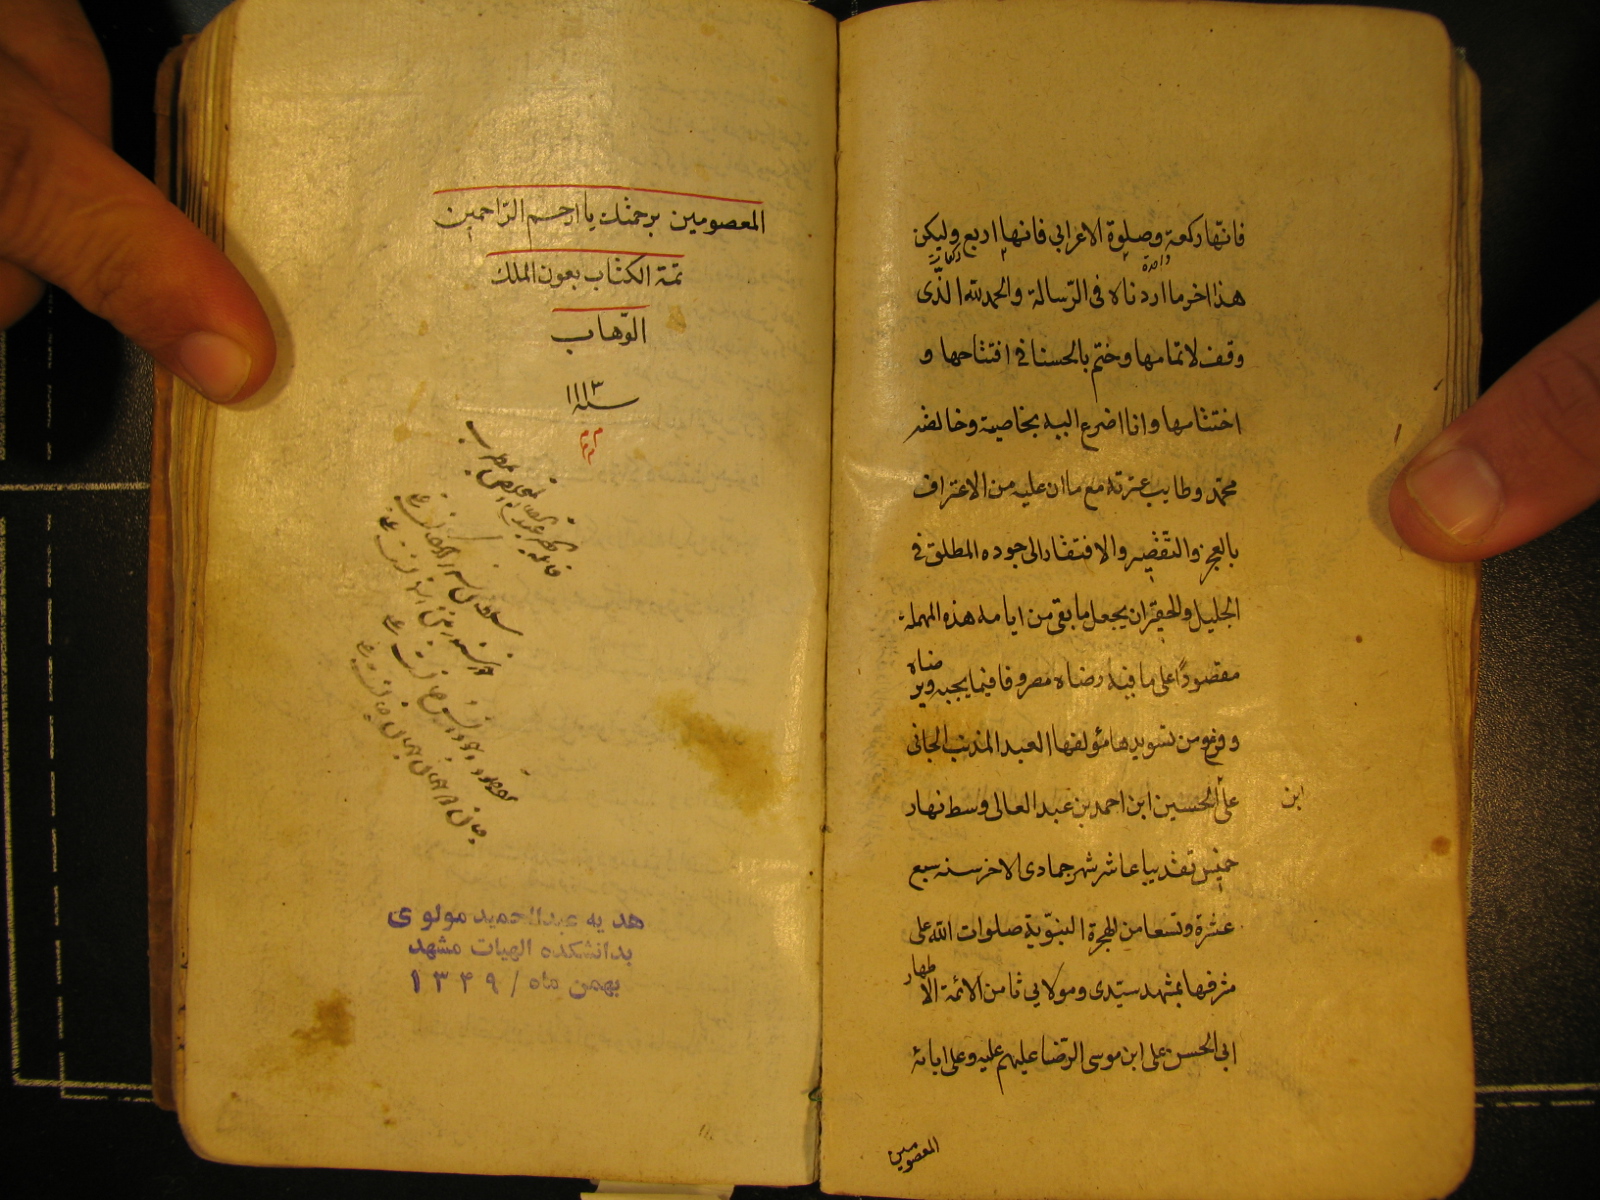 فانها ركعة وصلوة الاعرابي فانها اربع وليكن
واحدة
ركعات
هذا اخر ما اردناه فى الرّسالة والحمد لله الذّى
وقف لاتمامها وختم بالحسنا في افتتاحها و
اختتامها وانا اضرع اليه بخاصيته وخالصته
محمّد وطايب عترته مع ما ان عليه من الاعتراف
بالعجز والتقصير والافتقار الى جوده المطلق في
الجليل والحقير ان يجعل ما بقى من ايامه هذه المهملة
مقصودًا على ما فيه رضاه مصروفا فيما يحبه وير
ضاه
وفرغ من تسويدها مؤلفها العبد المذنب الجاني
على الحسين ابن احمد بن عبد العالى وسط نهار
ابن
خميس تقديبا عاشر شهر جمادى الاخر سنه سبع
عشرة وتسعا من الهجرة النبوّية صلوات الله على
مشرفها بمشهد سيّدى ومولايي ثامن الائمة الا
طهار
ابى الحسن على ابن موسى الرّضا عليهم عليه وعلى ابائه
المعصومين
المعصومين برحمتك يا ارحم الرّاحمين
تمة الكتاب بعون الملك
الوّهاب
سنه ١١١٣
هدیه عبدالحمید مولوی
بدانشکده الهیات مشهد
بهمن ماه / ۱۳۴۹